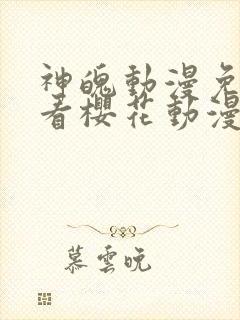 神魄動漫免
看櫻花動漫
慕雲晚